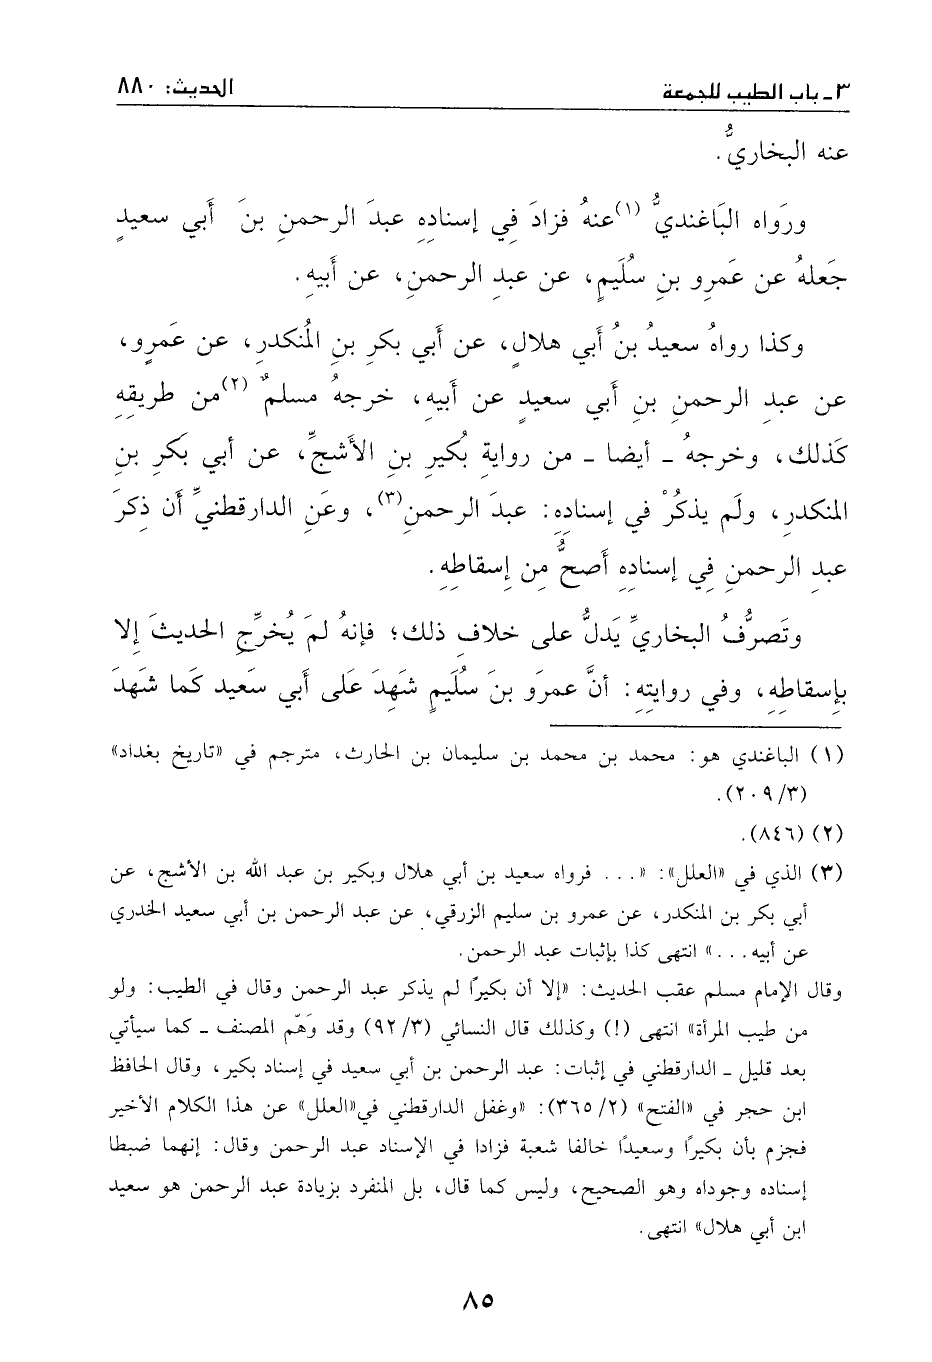 ٣ - باب الطيب للجمعة الحديث: ٨٨٠
عنه البخاريُّ.
ورَواه البَاغنديُّ (١) عنهُ فزادَ فِي إسنادِهِ عبدَ الرحمنِ بنَ أَبي سعيدٍ
جَعلهُ عن عَمرِو بنِ سُلَيمٍ، عن عبدِ الرحمنِ، عن أَبيهِ.
وكذا رواهُ سعيدُ بنُ أَبي هلالٍ، عن أَبي بكرِ بنِ المُنكدرِ، عن عَمرٍو،
عن عبدِ الرحمنِ بنِ أَبي سعيدٍ عن أَبيهِ، خرجهُ مسلمٌ (٢) من طريقِهِ
كَذلك، وخرجهُ - أيضا - من روايةِ بُكيرِ بنِ الأَشجِّ، عن أبي بَكرِ بنِ
المنكدرِ، ولَم يذكُرْ في إسنادِهِ: عبدَ الرحمنِ (٣)، وعَنِ الدارقطنيِّ أن ذِكرَ
عبدِ الرحمنِ فِي إسنادِهِ أَصحُّ مِن إسقاطِهِ.
وتَصرُّفُ البخاريِّ يَدلُّ على خلافِ ذلك؛ فإنهُ لمَ يُخرِّجِ الحديثَ إلا
بإسقاطِهِ، وفي روايتِهِ: أنَّ عمرَو بنَ سُلَيمٍ شَهِدَ عَلى أَبي سعَيد كمَا شهَدَ
(١) الباغندي هو: محمد بن محمد بن سليمان بن الحارث، مترجم في «تاريخ بغداد»
(٣/ ٢٠٩).
(٢) (٨٤٦).
(٣) الذي في «العلل»: «... فرواه سعيد بن أبي هلال وبكير بن عبد الله بن الأشج، عن
أبي بكر بن المنكدر، عن عمرو بن سليم الزرقي، عن عبد الرحمن بن أبي سعيد الخدري
عن أبيه...» انتهى كذا بإثبات عبد الرحمن.
وقال الإمام مسلم عقب الحديث: «إلا أن بكيرًا لم يذكر عبد الرحمن وقال في الطيب: ولو
من طيب المرأة» انتهى (!) وكذلك قال النسائي (٣/ ٩٢) وقد وَهّم المصنف - كما سيأتي
بعد قليل - الدارقطني في إثبات: عبد الرحمن بن أبي سعيد في إسناد بكير، وقال الحافظ
ابن حجر في «الفتح» (٢/ ٣٦٥): «وغفل الدارقطني في«العلل» عن هذا الكلام الأخير
فجزم بأن بكيرًا وسعيدًا خالفا شعبة فزادا في الإسناد عبد الرحمن وقال: إنهما ضبطا
إسناده وجوداه وهو الصحيح، وليس كما قال، بل المنفرد بزيادة عبد الرحمن هو سعيد
ابن أبي هلال» انتهى.
٨٥